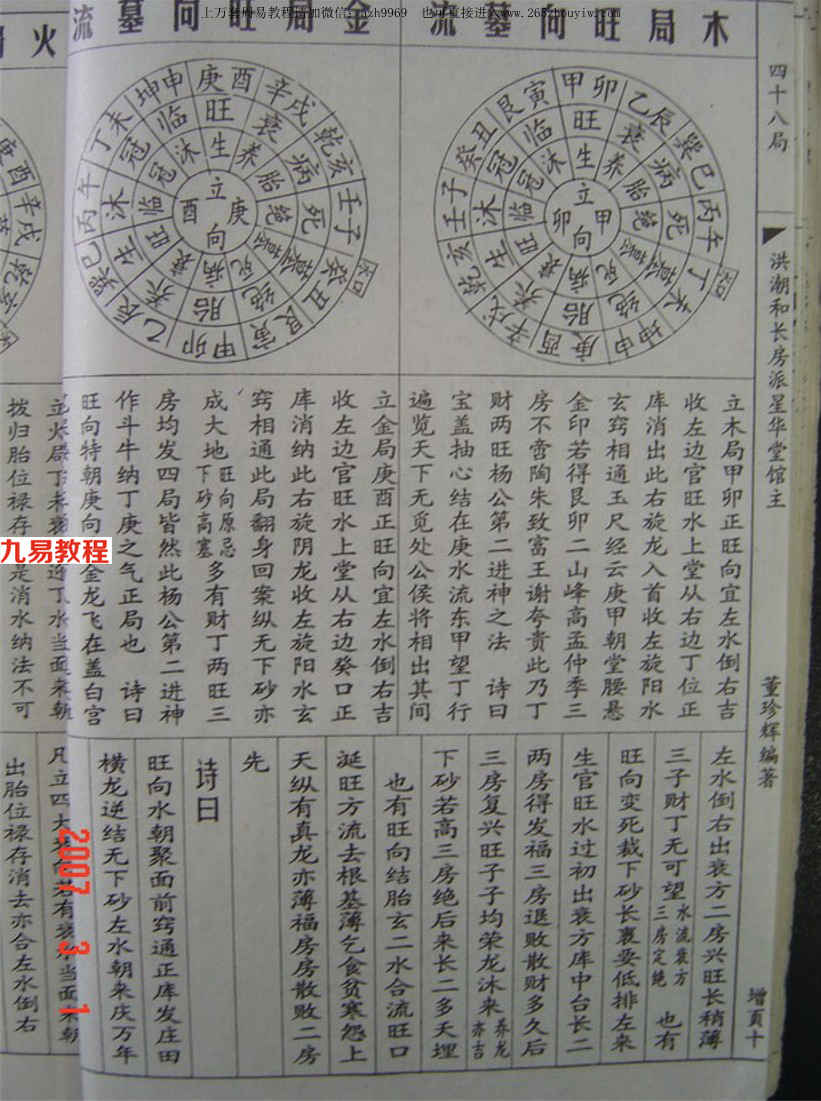 木局旺向墓流
四十八局
洪潮和长房派星华堂馆主
董珍辉编著
增頁十
立木局甲卯正旺向宜左水倒右吉
收左边官旺水上堂从右边丁位正
库消出此右旋龙入首收左旋阳水
玄窍相通玉尺经云庚甲朝堂腰悬
金印若得艮卯二山峰高孟仲季三
房不啻陶朱致富王谢夸贵此乃丁
财两旺杨公第二进神之法 诗曰
宝盖抽心结在庚水流东甲望丁行
遍览天下无觅处公侯将相出其间
金局旺向墓流
立金局庚酉正旺向宜左水倒右吉
收左边官旺水上堂从右边癸口正
库消纳此右旋阴龙收左旋阳水玄
窍相通此局翻身回案纵无下砂亦
成大地旺向原忌下砂高塞多有财丁两旺三
房均发四局皆然此杨公第二进神
作斗牛纳丁庚之气正局也 诗曰
旺向特朝庚向 金龙飞在盖白宫
左水倒右出衰方二房兴旺长稍薄
三子财丁无可望水流衰方三房定绝 也有
旺向变死裁下砂长裏要低排左来
生官旺水过初出衰方库中台长二
两房得发福三房退败散财多久后
三房复兴旺子子均荣龙沐来养龙亦吉
下砂若高三房绝后来长二多夭埋
也有旺向结胎玄二水合流旺口
涎旺方流去根基薄乞食贫寒怨上
天纵有真龙亦薄福房房散败二房
先
诗曰
旺向水朝聚面前窍通正库发庄田
横龙逆结无下砂左水朝来庆万年
立 甲 向 卯
生 养 胎 绝 墓 死 病 衰 旺 临 冠 沐
旺 衰 病 死 墓 绝 胎 养 生 沐 冠 临
甲卯 乙辰 巽巳 丙午 丁未 坤申 庚酉 辛戌 乾亥 壬子 癸丑 艮寅
水口
立 庚 向 酉
生 养 胎 绝 墓 死 病 衰 旺 临 冠 沐
旺 衰 病 死 墓 绝 胎 养 生 沐 冠 临
庚酉 辛戌 乾亥 壬子 癸丑 艮寅 甲卯 乙辰 巽巳 丙午 丁未 坤申
水口
火
庚酉
辛戌
乾亥
拨归胎位禄存 是消水纳法不可
出胎位禄存消去亦合左水倒右
九易教程
2007 3 1